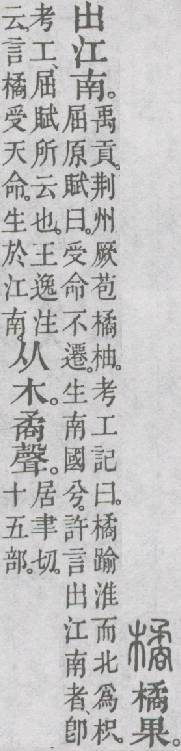 橘 橘果。
出江南。禹貢。荆州厥苞橘柚。考工記曰。橘踰淮而北爲枳。
屈原賦曰。受命不遷。生南國兮。許言出江南者、卽
考工、屈賦所云也。王逸注
云。言橘受天命。生於江南。
从木。矞聲。
居聿切。
十五部。